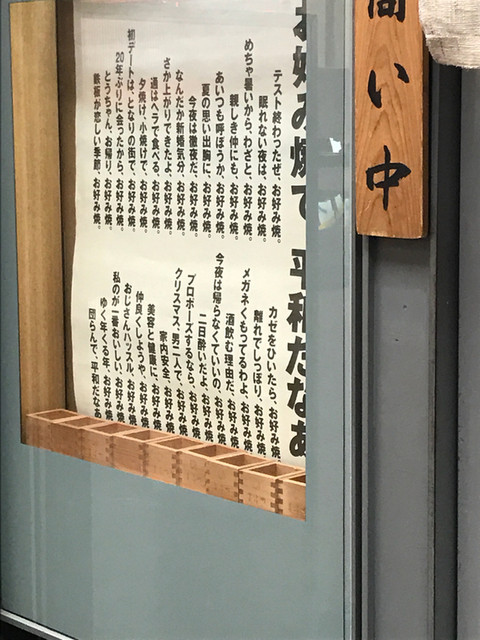 商い中
お好み焼で、平和だなあ
テスト終わったぜ、お好み焼。
眠れない夜は、お好み焼。
めちゃ暑いから、わざと、お好み焼。
親しき仲にも、お好み焼。
あいつも呼ぼうか、お好み焼。
夏の思い出胸に、お好み焼。
今夜は徹夜だ、お好み焼。
なんだか新婚気分、お好み焼。
さか上がりできたよ、お好み焼。
通はヘラで食べる、お好み焼。
夕焼け、小焼けで、お好み焼。
初デートは、となりの街で、お好み焼。
20年ぶりに会ったから、お好み焼。
とうちゃん、お帰り、お好み焼。
鉄板が恋しい季節、お好み焼。
カゼをひいたら、お好み焼。
離れでしっぽり、お好み焼。
メガネくもってるわよ、お好み焼。
酒飲む理由だ、お好み焼。
今夜は帰らなくていいの、お好み焼。
二日酔いだよ、お好み焼。
プロポーズするなら、お好み焼。
クリスマス、男二人で、お好み焼。
家内安全、お好み焼。
美容と健康に、お好み焼。
仲良くしようや、お好み焼。
おじさんハッスル、お好み焼。
私のが一番おいしい、お好み焼。
ゆく年くる年、お好み焼。
団らんで、平和だなあ